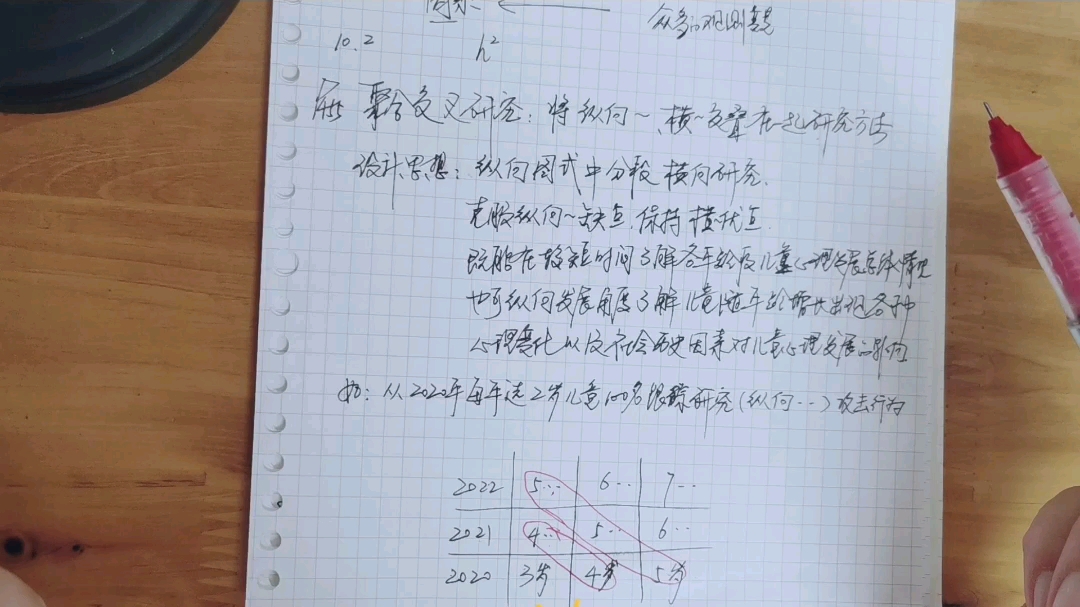 因素
众多的观测变量
10.2 h²
聚合交叉研究：将纵向~、横~交叠在一起研究方法
设计思想：纵向图式中分段横向研究.
克服纵向~缺点.保持横~优点.
既能在较短时间了解各年龄段儿童心理发展总体情况
也可纵向发展角度了解儿童随年龄增长出现各种
心理变化以及社会历史因素对儿童心理发展的影响
如：从2020年每年选2岁儿童100名跟踪研究(纵向··)攻击行为
2022 5··· 6·· 7··
2021 4··· 5·· 6··
2020 3岁 4岁 5岁